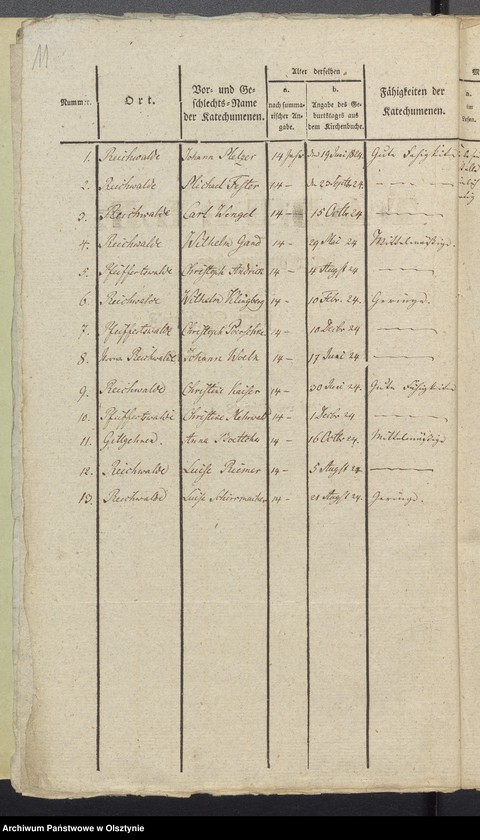 11
Nummer.
Ort.
Vor- und Ge-
schlechts-Name
der Katechumenen.
Alter derselben,
a.
nach summa-
rischer An-
gabe.
b.
Angabe des Ge-
burtstages aus
dem Kirchenbuche.
Fähigkeiten der
Katechumenen.
a.
im
Lesen.
1. Reichwalde Johann Meltzer 14 Jahr den 19 Juni 1824. Gute Fähigkeiten
2. Reichwalde Michael 14 — d. 23 Septbr 24.
3. Reichwalde Carl Wengel 14 — 15 Octbr 24
4. Reichwalde Wilhelm Gand 14 — 29 Mai 24 Mittelmäßige.
5. Pfeiffertswalde Christoph 14 — 4 Augst 24
6. Reichwalde Wilhelm Klingberg 14 — 10 Febr. 24. Geringe.
7. Pfeiffertswalde Christoph Poerschke 14 — 10 Decbr 24
8. Reichwalde Johann 14 — 17 Juni 24
9. Reichwalde Christine Kaiser 14 — 30 Juni 24. Gute Fähigkeiten
10. Pfeiffertswalde Christine 14 — 1 Decbr 24
11. Gottgehnen. Anna 14 — 16 Octbr 24. Mittelmäßige
12. Reichwalde Luise Riemer 14 — 5 Augst 24.
13. Reichwalde Luise Schirrmacher 14 — 21 Augst 24. Geringe.
Archiwum Państwowe w Olsztynie